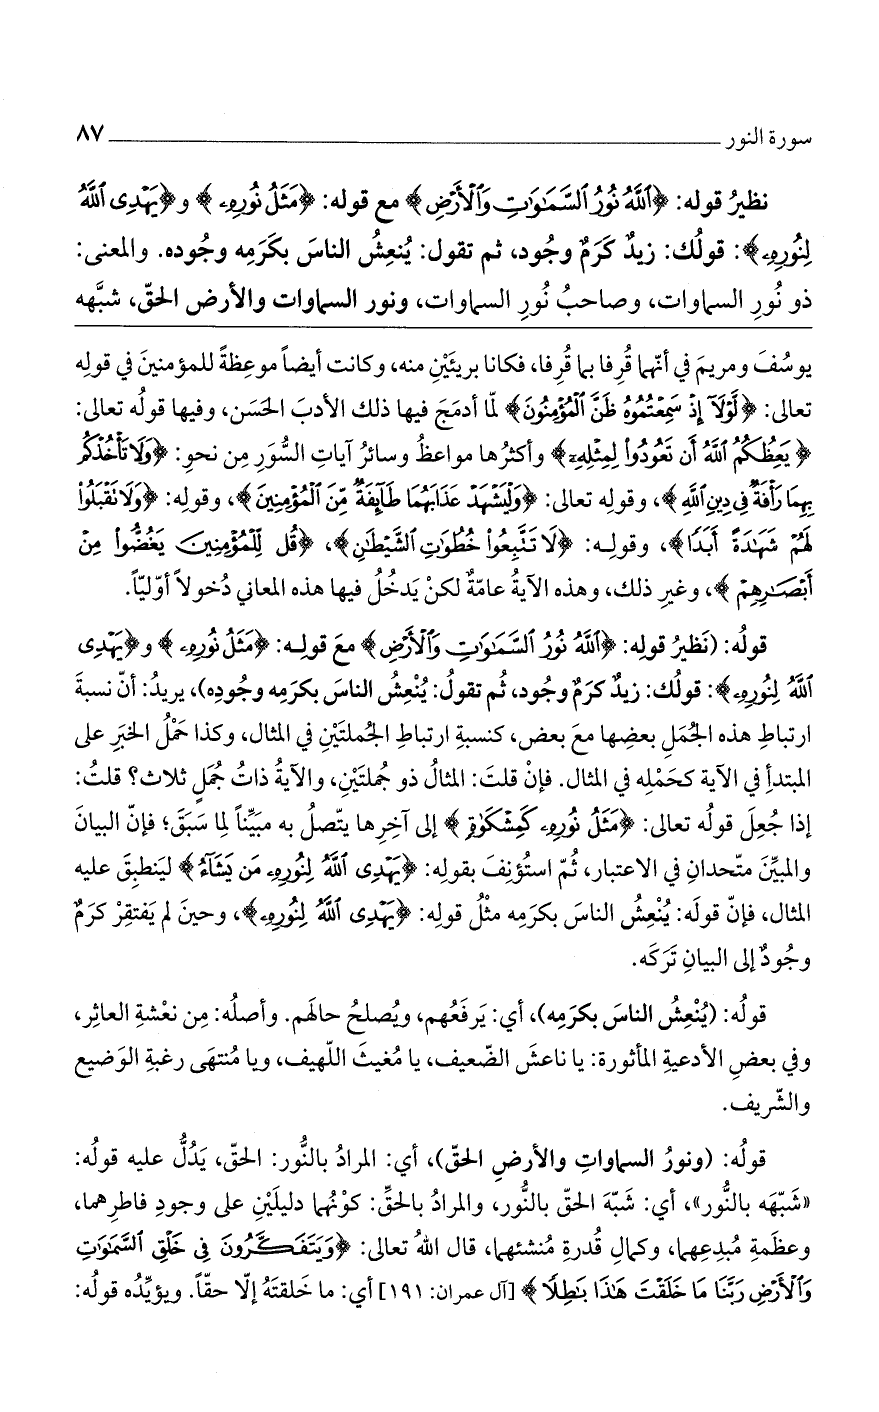 سورة النور ٨٧
نظيرُ قوله: ﴿ٱللَّهُ نُورُ ٱلسَّمَٰوَٰتِ وَٱلْأَرْضِ﴾ مع قوله: ﴿مَثَلُ نُورِهِۦ﴾ و﴿يَهْدِى ٱللَّهُ
لِنُورِهِۦ﴾: قولُك: زيدٌ كَرَمٌ وجُود، ثم تقول: يُنعِشُ الناسَ بكَرَمِه وجُوده. والمعنى:
ذو نُورِ السماوات، وصاحبُ نُورِ السماوات، ونور السماوات والأرض الحقّ، شبَّهه
يوسُفَ ومريمَ في أنّهما قُرِفا بما قُرِفا، فكانا بريئَيْنِ منه، وكانت أيضاً موعِظةً للمؤمنينَ في قولِه
تعالى: ﴿لَّوْلَآ إِذْ سَمِعْتُمُوهُ ظَنَّ ٱلْمُؤْمِنُونَ﴾ لمّا أدمَجَ فيها ذلك الأدبَ الحَسَن، وفيها قولُه تعالى:
﴿يَعِظُكُمُ ٱللَّهُ أَن تَعُودُوا۟ لِمِثْلِهِۦٓ﴾ وأكثرُها مواعظُ وسائرُ آياتِ السُّوَرِ مِن نحوِ: ﴿وَلَا تَأْخُذْكُم
بِهِمَا رَأْفَةٌ فِى دِينِ ٱللَّهِ﴾، وقولِه تعالى: ﴿وَلْيَشْهَدْ عَذَابَهُمَا طَآئِفَةٌ مِّنَ ٱلْمُؤْمِنِينَ﴾، وقولِه: ﴿وَلَا تَقْبَلُوا۟
لَهُمْ شَهَٰدَةً أَبَدًا﴾، وقولِه: ﴿لَا تَتَّبِعُوا۟ خُطُوَٰتِ ٱلشَّيْطَٰنِ﴾، ﴿قُل لِّلْمُؤْمِنِينَ يَغُضُّوا۟ مِنْ
أَبْصَٰرِهِمْ﴾، وغيرِ ذلك، وهذه الآيةُ عامّةٌ لكنْ يَدخُلُ فيها هذه المعاني دُخولاً أوّليّاً.
قولُه: (نَظيرُ قولِه: ﴿ٱللَّهُ نُورُ ٱلسَّمَٰوَٰتِ وَٱلْأَرْضِ﴾ معَ قولِه: ﴿مَثَلُ نُورِهِۦ﴾ و﴿يَهْدِى
ٱللَّهُ لِنُورِهِۦ﴾: قولُك: زيدٌ كرَمٌ وجُود، ثُم تقولُ: يُنْعِشُ الناسَ بكرَمِه وجُودِه)، يريدُ: أنّ نسبةَ
ارتباطِ هذه الجُمَلِ بعضِها معَ بعض، كنسبةِ ارتباطِ الجُملتَيْنِ في المثال، وكذا حَمْلُ الخبَرِ على
المبتدأِ في الآية كحَمْلِه في المثال. فإنْ قلتَ: المثالُ ذو جُملتَيْنِ، والآيةُ ذاتُ جُمَلٍ ثلاث؟ قلتُ:
إذا جُعِلَ قولُه تعالى: ﴿مَثَلُ نُورِهِۦ كَمِشْكَوٰةٍ﴾ إلى آخِرِها يتّصلُ به مبيِّناً لِما سَبَقَ؛ فإنّ البيانَ
والمبيَّنَ متّحدانِ في الاعتبار، ثُمّ استُؤنِفَ بقولِه: ﴿يَهْدِى ٱللَّهُ لِنُورِهِۦ مَن يَشَآءُ﴾ ليَنطبِقَ عليه
المثال، فإنّ قولَه: يُنْعِشُ الناسَ بكرَمِه مثْلُ قولِه: ﴿يَهْدِى ٱللَّهُ لِنُورِهِۦ﴾، وحينَ لم يَفتقِرْ كرَمٌ
وجُودٌ إلى البيانِ تَرَكَه.
قولُه: (يُنْعِشُ الناسَ بكرَمِه)، أي: يَرفَعُهم، ويُصلحُ حالَهم. وأصلُه: مِن نعْشةِ العاثِر،
وفي بعضِ الأدعيةِ المأثورة: يا ناعشَ الضّعيف، يا مُغيثَ اللّهيف، ويا مُنتهَى رغبةِ الوَضيع
والشّريف.
قولُه: (ونورُ السماواتِ والأرضِ الحقّ)، أي: المرادُ بالنُّور: الحقّ، يَدُلُّ عليه قولُه:
«شَبّهَه بالنُّور»، أي: شَبّهَ الحقّ بالنُّور، والمرادُ بالحقِّ: كوْنُهما دليلَيْنِ على وجودِ فاطرِهما،
وعظَمةِ مُبدِعِهما، وكمالِ قُدرةِ مُنشئهما، قال اللهُ تعالى: ﴿وَيَتَفَكَّرُونَ فِى خَلْقِ ٱلسَّمَٰوَٰتِ
وَٱلْأَرْضِ رَبَّنَا مَا خَلَقْتَ هَٰذَا بَٰطِلًا﴾ [آل عمران: ١٩١] أي: ما خَلقتَهُ إلّا حقّاً. ويؤيِّدُه قولُه: